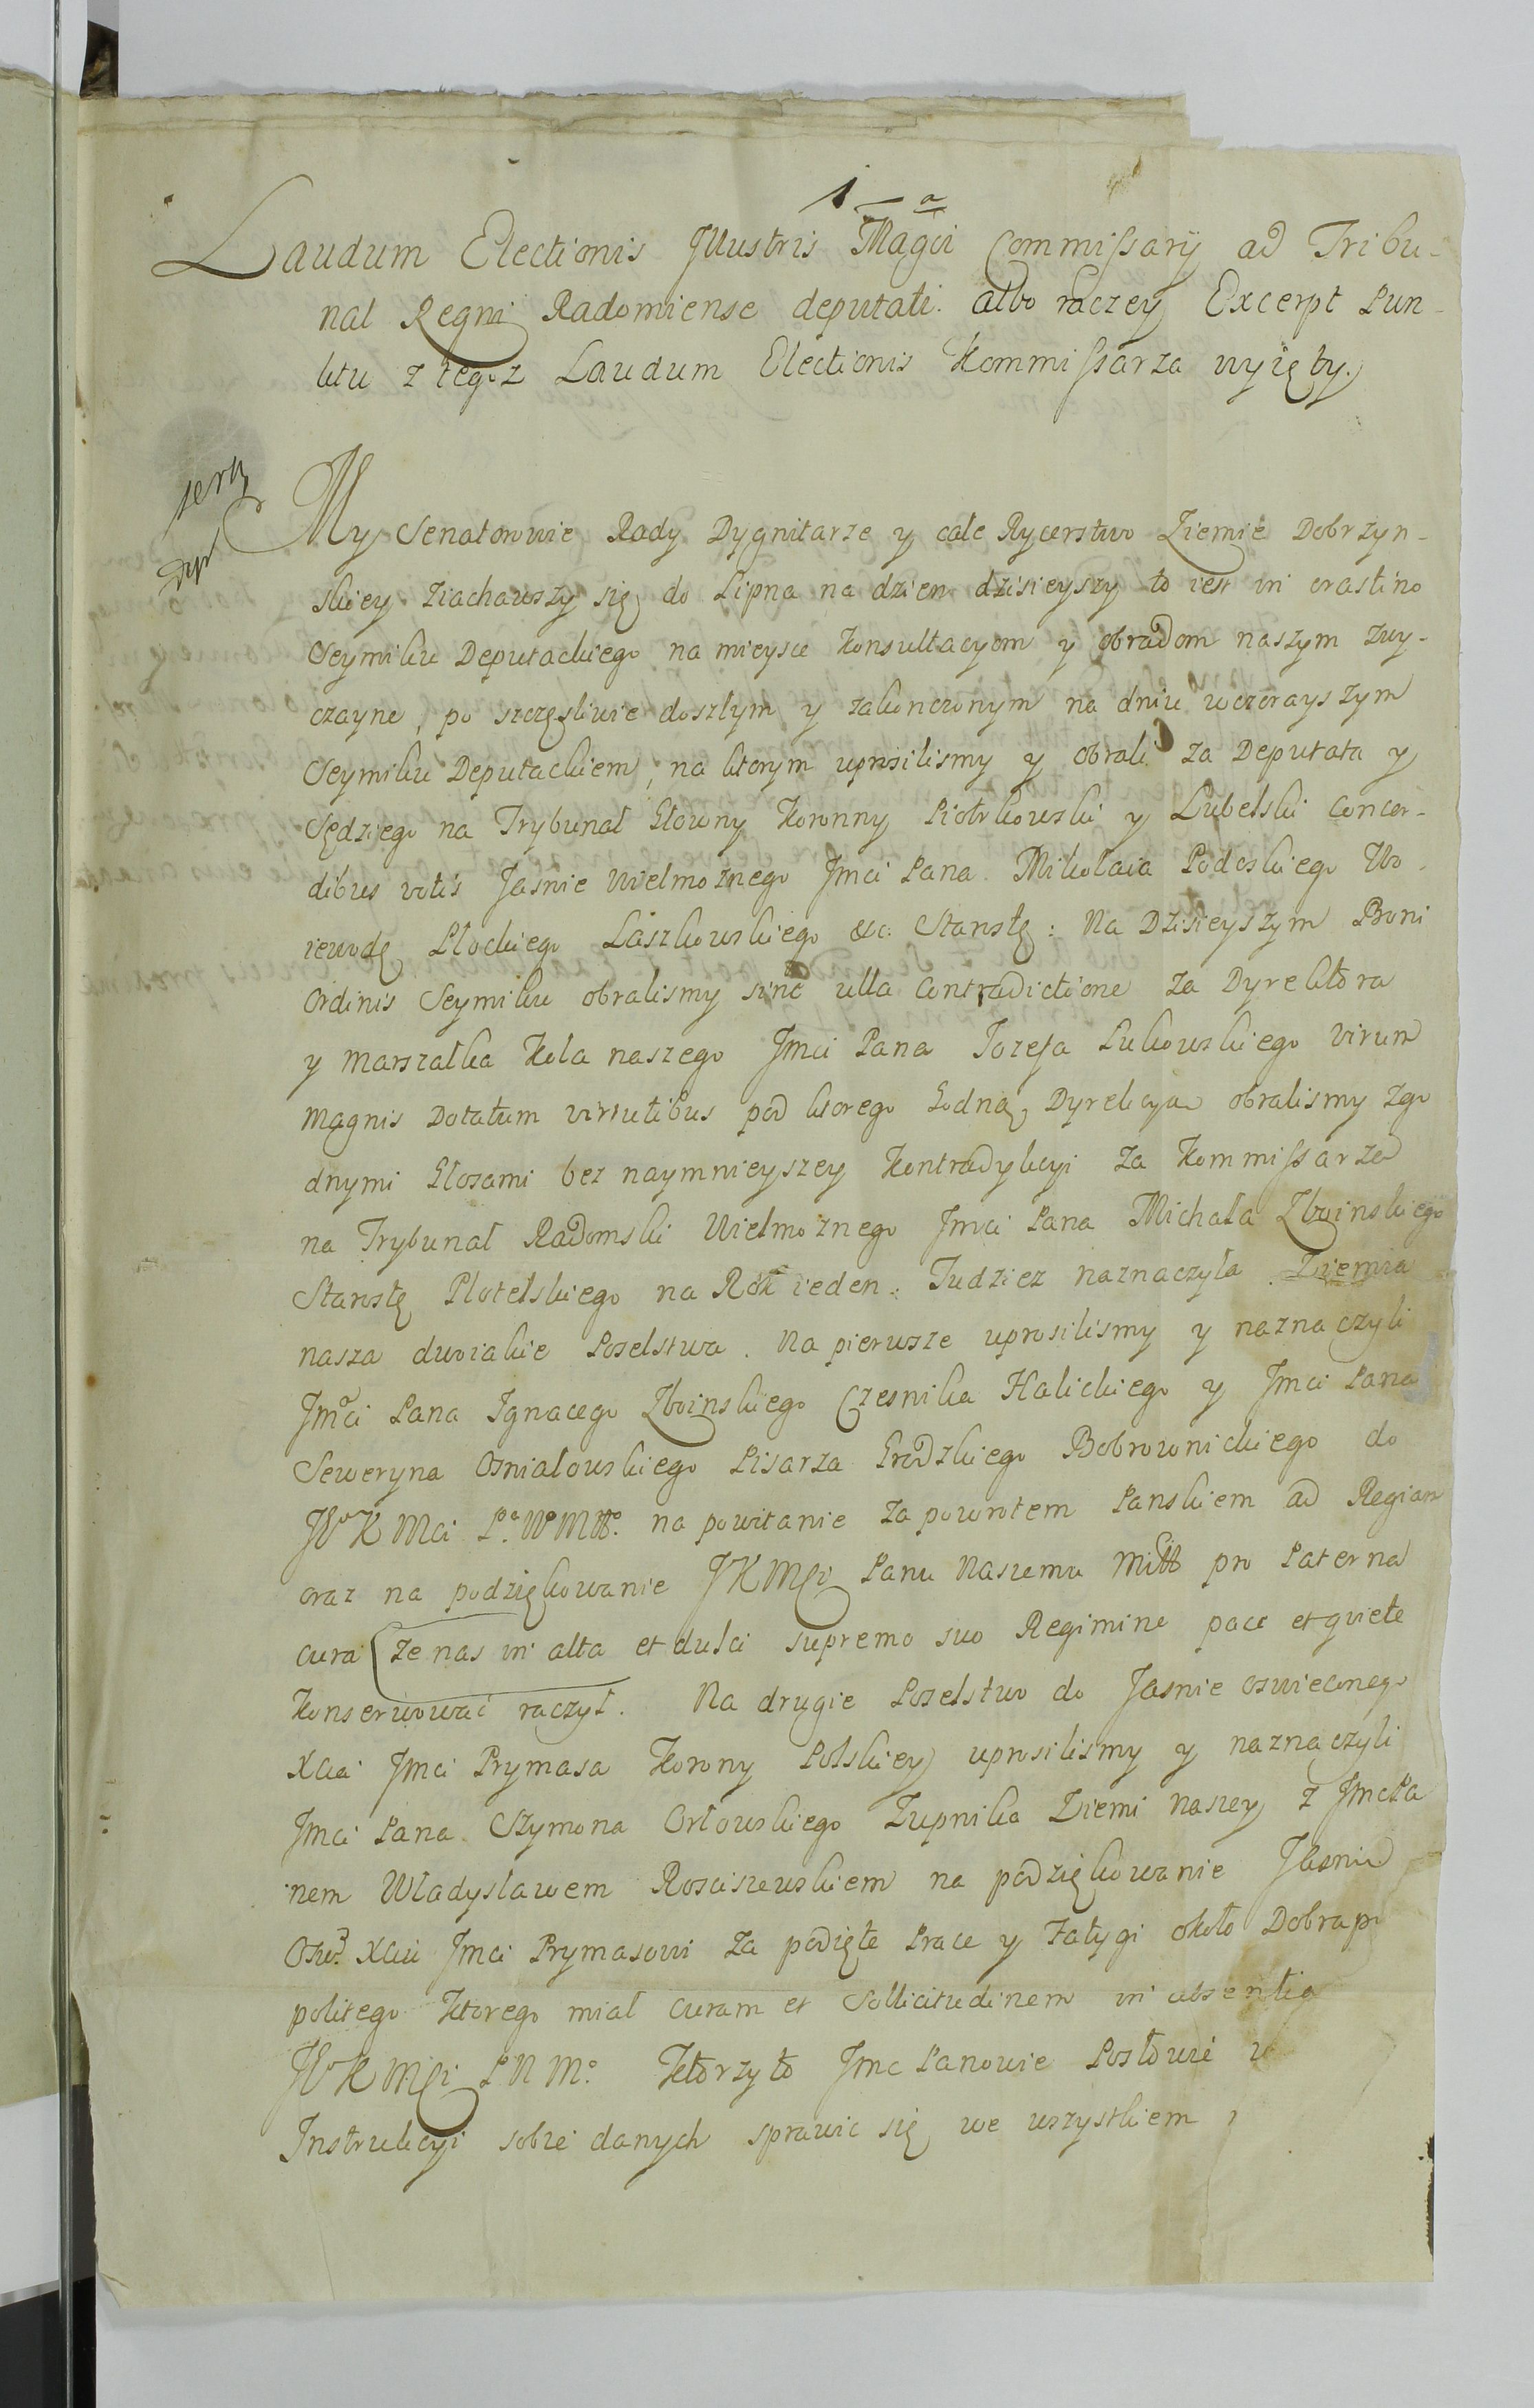 1-a
Laudum Electionis Jllustris Magci Commissarij ad Tribu-
nal Regni Radomiense deputati. albo raczey Excerpt Pun-
ktu z tegoz Laudum Electionis Kommissarza wyięty.
My Senatorowie Rady Dygnitarze y całe Rycerstwo Ziemie Dobrzyn-
skiey ziachawszy się do Lipna na dzien dzisieyszy to iest in crastino
Seymiku Deputackiego na mieysce Konsultacyom y obradom naszym zwy-
czayne, po szczęsliwie doszłym y zakonczonym na dniu wczorayszym
Seymiku Deputackiem, na ktorym uprosilismy y obrali za Deputata y
Sędziego na Trybunał Głowny Koronny Piotrkowski y Lubelski Concor-
dibus votis Jasnie Wielmoznego Jmci Pana Mikołaia Podoskiego Wo-
iewodę Płockiego Łaszkowskiego &c: Starostę: Na Dzisieyszym Boni
Ordinis Seymiku obralismy sine ulla Contradictione za Dyrektora
y Marszałka Koła naszego Jmci Pana Jozefa Lukowskiego virum
Magnis Dotatum virtutibus pod ktorego Godną Dyrekcya obralismy zgo
dnymi Głosami bez naymnieyszey Kontradykcyi za Kommissarza
na Trybunał Radomski Wielmoznego Jmci Pana Michała Zboinskiego
Starostę Płotelskiego na Rok ieden: Tudziez naznaczyła Ziemia
nasza dwoiakie Poselstwa. Na pierwsze uprosilismy y naznaczyli
Jmci Pana Ignacego Zboinskiego Czesnika Halickiego y Jmci Pana
Seweryna Osniałowskiego Pisarza Grodzkiego Bobrownickiego do
Jo K Mci Pa No Mo na powitanie za powrotem Panskiem ad Regiam
oraz na podziękowanie JKMCi Panu Naszemu Miłł pro Paterna
cura (ze nas in alta et dulci supremo suo Regimine pace et quiete
Konserwować raczył. Na drugie Poselstwo do Jasnie oswieconego
Xcia Jmci Prymasa Korony Polskiey uprosilismy y naznaczyli
Jmci Pana Szymona Orłowskiego Zupnika Ziemi Naszey z JmcPa
nem Władysławem Rosciszewskiem na podziękowanie Jasnie
Osw. Xciu Jmci Prymasowi za podięte Prace y Fatygi około Dobra po
politego Ktorego miał curam et Sollicitudinem in absentia
Jo K Mci P N Mo Ktorzyto Jmc Panowie Posłowie
Instrukcyi sobie danych sprawic się we wszystkiem